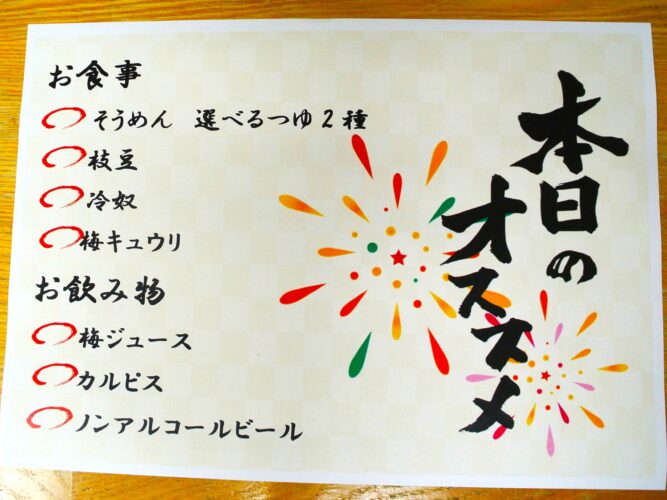 本日の
オススメ
お食事
そうめん 選べるつゆ2種
枝豆
冷奴
梅キュウリ
お飲み物
梅ジュース
カルピス
ノンアルコールビール